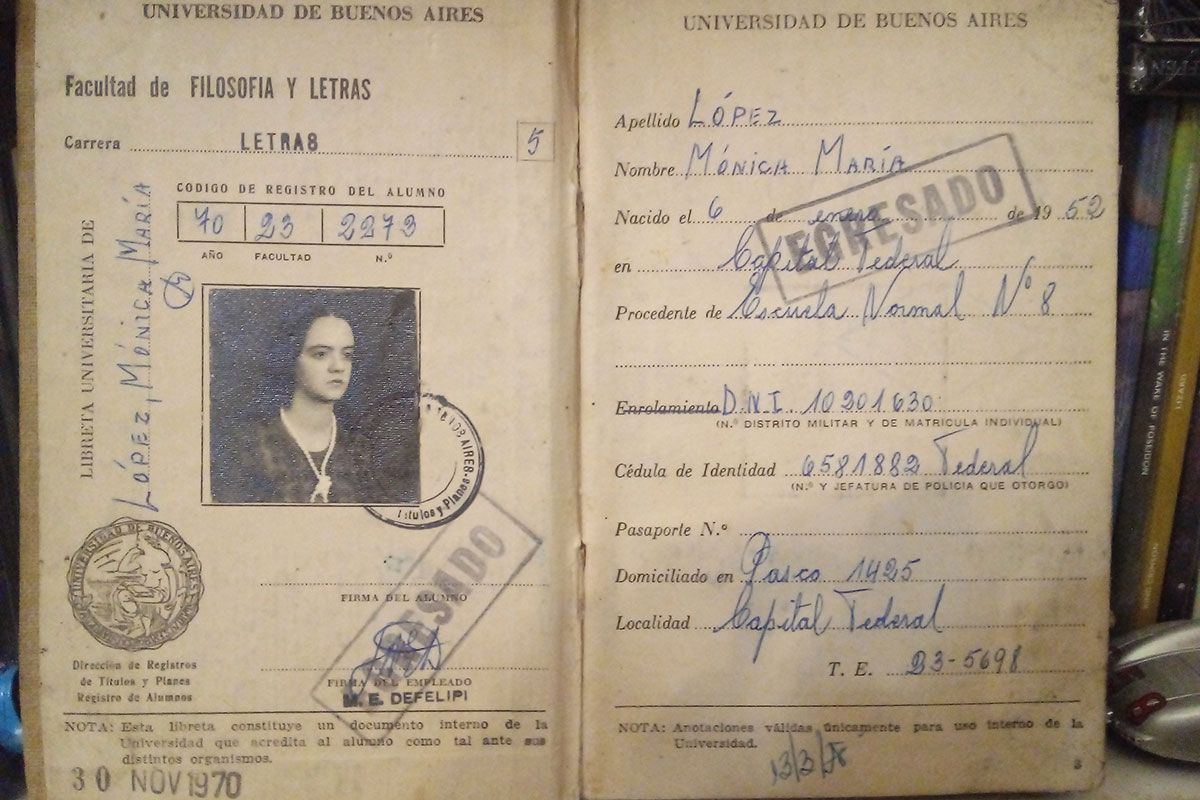 UNIVERSIDAD DE BUENOS AIRES
Facultad de FILOSOFIA Y LETRAS
Carrera LETRAS 5
CODIGO DE REGISTRO DEL ALUMNO
70 23 2273
AÑO FACULTAD N.º
LIBRETA UNIVERSITARIA DE
LÓPEZ, MÓNICA MARÍA
Títulos y Planes
UNIVERSIDAD DE BUENOS AIRES
Dirección de Registros
de Títulos y Planes
Registro de Alumnos
FIRMA DEL ALUMNO
EGRESADO
FIRMA DEL EMPLEADO
M. E. DEFELIPI
NOTA: Esta libreta constituye un documento interno de la
Universidad que acredita al alumno como tal ante sus
distintos organismos.
30 NOV 1970
UNIVERSIDAD DE BUENOS AIRES
Apellido LÓPEZ
Nombre MÓNICA MARÍA
Nacido el 6 de enero de 1952
EGRESADO
en Capital Federal
Procedente de Escuela Normal Nº 8
Enrolamiento D.N.I. 10201630
(N.º DISTRITO MILITAR Y DE MATRICULA INDIVIDUAL)
Cédula de Identidad 6581882 Federal
(N.º Y JEFATURA DE POLICIA QUE OTORGO)
Pasaporte N.º
Domiciliado en Pasco 1425
Localidad Capital Federal
T. E. B3-5698
NOTA: Anotaciones válidas únicamente para uso interno de la
Universidad.
13/3/78
3
IN THE WAKE OF POSEIDON